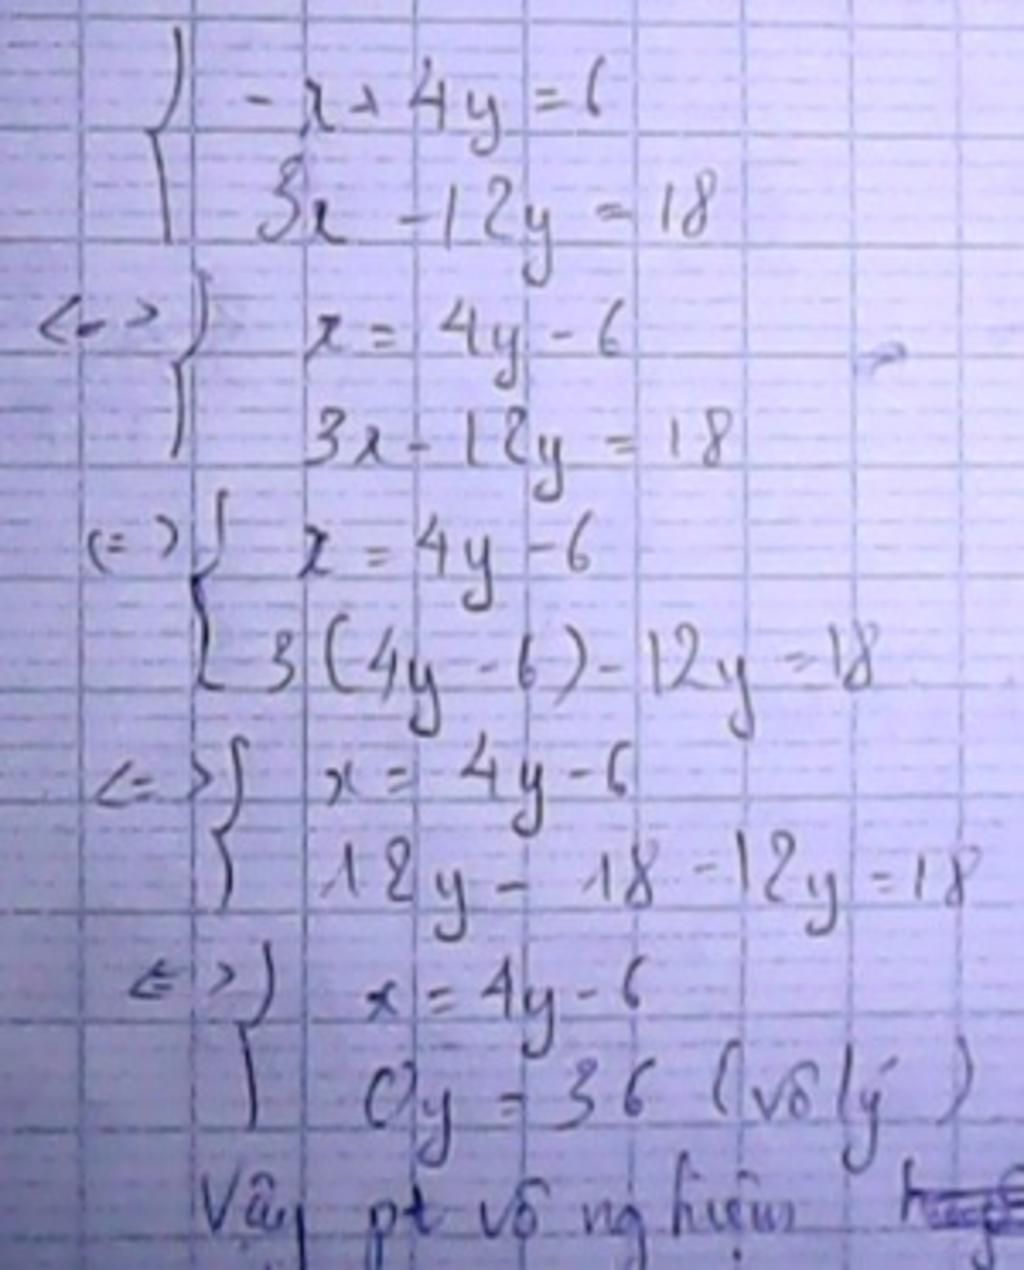 { -x + 4y = 6
3x - 12y = 18
<=> { x = 4y - 6
3x - 12y = 18
(=) { x = 4y - 6
3(4y - 6) - 12y = 18
<=> { x = 4y - 6
12y - 18 - 12y = 18
<=> { x = 4y - 6
0y = 36 (vô lý)
Vậy pt vô nghiệm